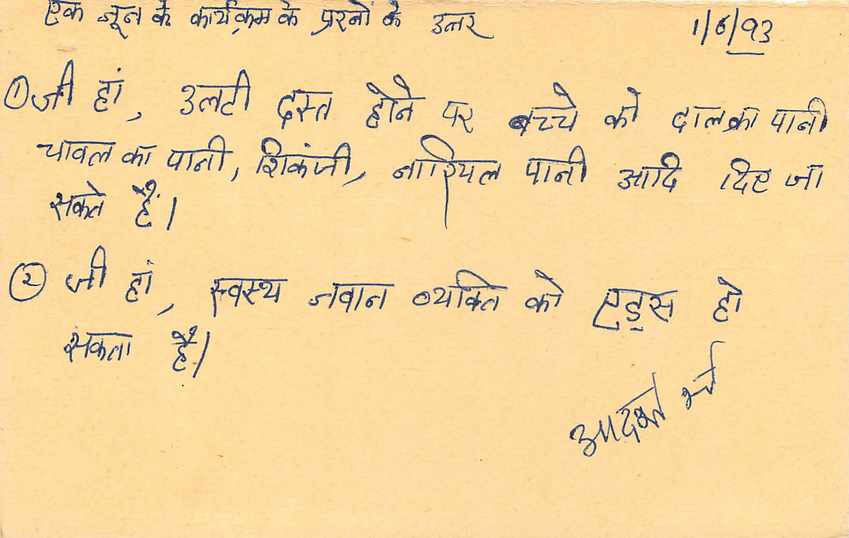 एक जून के कार्यक्रम के प्रश्नों के उत्तर 1/6/93
① जी हां, उलटी दस्त होने पर बच्चे को दाल का पानी
चावल का पानी, शिकंजी, नारियल पानी आदि दिए जा
सकते हैं।
② जी हां, स्वस्थ जवान व्यक्ति को एड्स हो
सकता है।